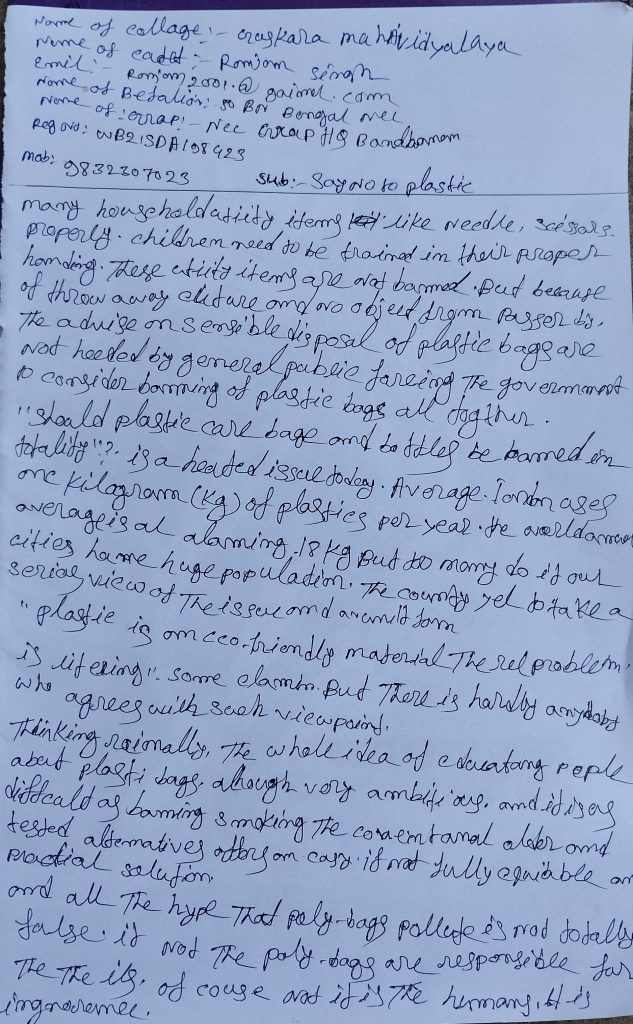 Name of collage:- Chaskara mahAvidyalaya
Name of cadet:- Romjom singh
Emil:- Romjom2001.@gaimel.com
Name of Betalion: 50 BN Bengal Ncc
Name of: Grrap:- Ncc Grrap HQ Bandhaman
Reg No: WB21SDA198423
mob: 9832307023 sub:- Say No to plastic
many household utiity items like Needle, scissors.
properly. children need to be trained in their proper
handing. These utiity items are not banned. But because
of throw away cluture and no object from passer by.
The advise on sensible disposal of plastic bags are
not heeded by general public foreing The government
to consider banning of plastic bags all together.
"should plastic care bage and bottles be banned in
totality"? is a heated issue today. Average. uses
one kilogram (kg) of plastics per year. the world
average is al alaming. 18 kg But too many do it out
cities have huge population. The country yet to take a
serias view of The issue and
"plastic is an eco-friendly material The rel problem.
is litering". some But There is hardly anydoby
who agrees with such viewpoint.
Thinking raionally, The whole idea of educatang peple
abut plasti bags. alhough very ambitious. and it is as
diffcald as banning smoking The convemtanal older and
tested altematives offers an easy. if not fully equiable an
practial solution.
and all The hype That poly-bags pollute is not totally
false. if not The poly-bags are responsible for
The The ills, of couse not it is The humans, It is
ingnoremce.